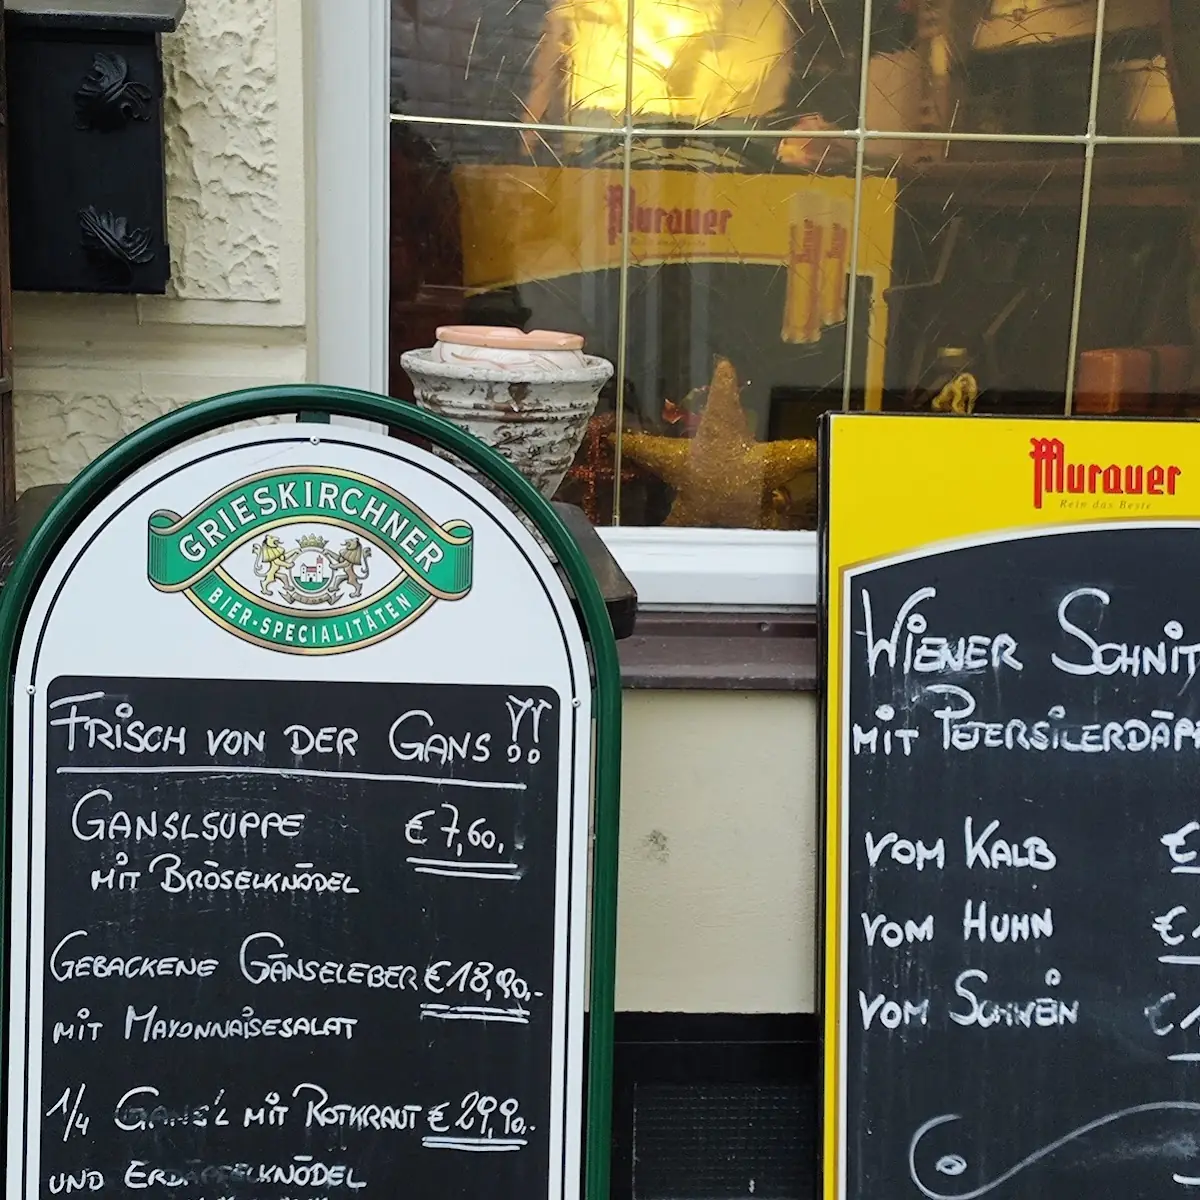 Murauer
GRIESKIRCHNER
BIER-SPECIALITÄTEN
FRISCH VON DER GANS !!
GANSLSUPPE € 7,60,
MIT BRÖSELKNÖDEL
GEBACKENE GÄNSELEBER € 18,90,-
MIT MAYONNAISESALAT
1/4 GANS'L MIT ROTKRAUT € 29,90,-
UND ERDÄPFELKNÖDEL
Murauer
Rein das Beste
WIENER SCHNIT
MIT PETERSILERDÄPF
VOM KALB €
VOM HUHN € 1
VOM SCHWEIN € 1